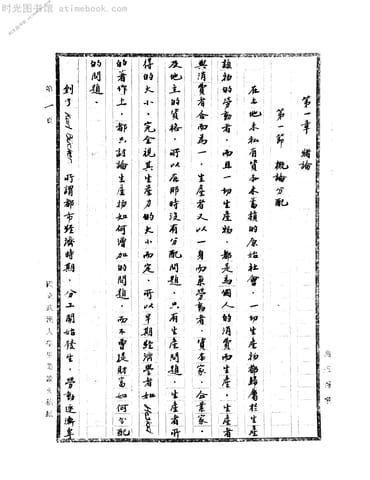 时光图书馆 - atimebook.com
第一章 緒論
第一節 概論分配
在土地未私有資本未蓄積的原始社會，一切生產物都歸屬於生產
該物的勞動者，而且一切生產物，都是為個人的消費而生產，生產者
與消費者合而為一，生產者又以一身而兼勞動者，資本家，企業家，
及地主的資格，所以在那時沒有分配問題，只有生產問題，生產者所
得的大小，完全視其生產力的大小而定，所以早期經濟學者如
的著作上，都只討論生產物如何增加的問題，而不曾提財富如何分配
的問題。
到了 所謂都市經濟時期，分工開始發生，勞動逐漸專
第一頁
國立武漢大學畢業論文稿紙
时光图书馆 - atimebook.com